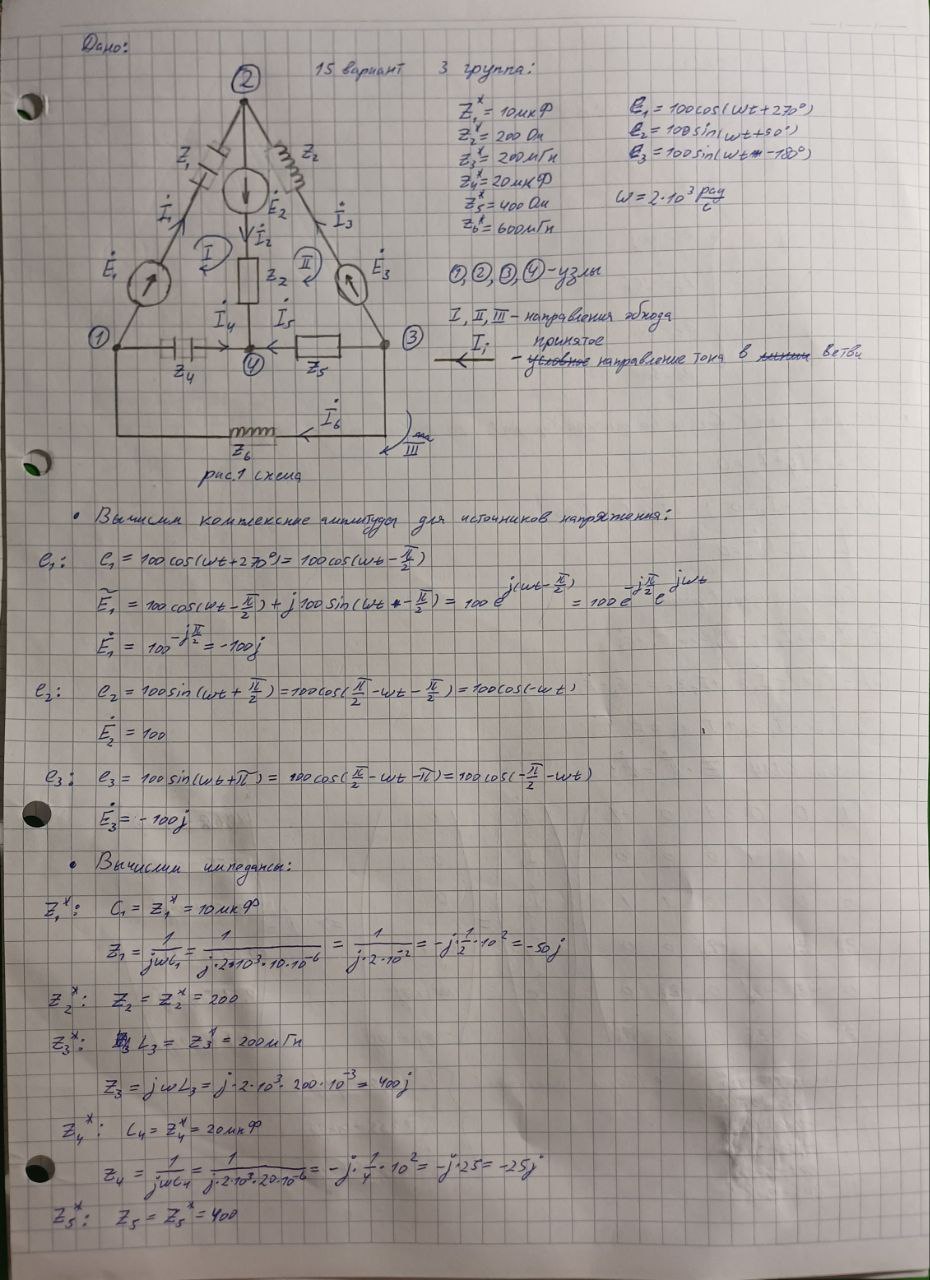 Дано:
15 вариант 3 группа:
②
Z₁* = 10мкФ
Z₂* = 200 Ом
Z₃* = 200мГн
Z₄* = 20мкФ
Z₅* = 400 Ом
Z₆* = 600мГн
e₁ = 100cos(ωt+270°)
e₂ = 100sin(ωt+90°)
e₃ = 100sin(ωt-180°)
ω = 2·10³ рад/с
Z₁
Z₂
İ₁
Ė₂
İ₃
İ₂
Ė₁
I
II
Ė₃
Z₂
İ₄
İ₅
①
③
Z₄
④
Z₅
İ₆
Z₆
III
рис.1 схема
①,②,③,④ - узлы
I, II, III - направления обхода
İᵢ - принятое
условное направление тока в линии ветви
• Вычислим комплексные амплитуды для источников напряжения:
e₁: e₁ = 100cos(ωt+270°) = 100cos(ωt-π/2)
Ẽ₁ = 100cos(ωt-π/2) + j100sin(ωt-π/2) = 100e^j(ωt-π/2) = 100e^-jπ/2 e^jωt
Ė₁ = 100^-jπ/2 = -100j
e₂: e₂ = 100sin(ωt+π/2) = 100cos(π/2-ωt-π/2) = 100cos(-ωt)
Ė₂ = 100
e₃: e₃ = 100sin(ωt+π) = 100cos(π/2-ωt-π) = 100cos(-π/2-ωt)
Ė₃ = -100j
• Вычислим импедансы:
Z₁*: C₁ = Z₁* = 10мкФ
Z₁ = 1/jωC₁ = 1/j·2·10³·10·10⁻⁶ = 1/j·2·10⁻² = -j·1/2·10² = -50j
Z₂*: Z₂ = Z₂* = 200
Z₃*: L₃ = Z₃* = 200мГн
Z₃ = jωL₃ = j·2·10³·200·10⁻³ = 400j
Z₄*: C₄ = Z₄* = 20мкФ
Z₄ = 1/jωC₄ = 1/j·2·10³·20·10⁻⁶ = -j·1/4·10² = -j·25 = -25j
Z₅*: Z₅ = Z₅* = 400